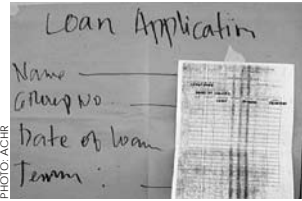 Loan Application
Name
Group No.
Date of loan
Term :
PHOTO: ACHR